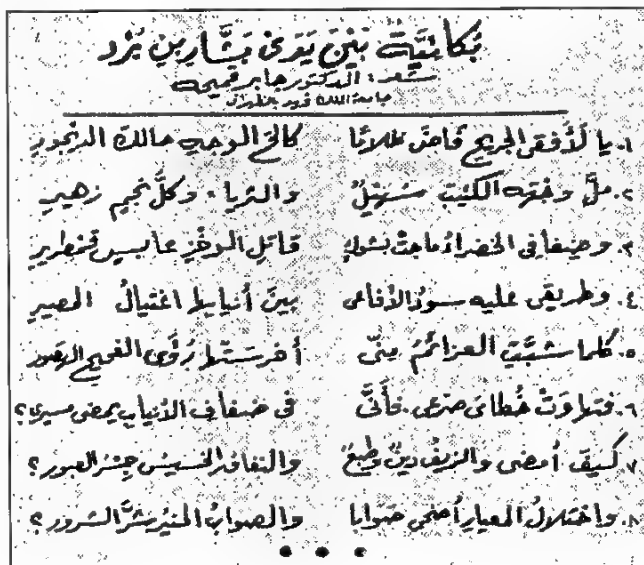 بُكائيَّةٌ بَيْنَ يَدَىْ بَشَّارِ بنِ بُرْد
شعر: الدكتور جابر قميحه
جامعة الملك فهد بالظهران
١. يا لَأُفقى الجريحِ فاضَ ظلامًا كالحَ الوجهِ حالكَ الديجورِ
٢. ملَّ وجْهَه الكئيبَ سُهَيْلٌ والثريا، وكلُّ نجمٍ زهيرِ
٣. وضِفافى الخضراءُ ماجتْ بشوكٍ قاتلِ الوخْزِ عابسٍ قمطريرِ
٤. وطريقى عليه سودُ الأفاعى بينَ أنيابِها اغتيالُ المصيرِ
٥. كلما شبَّتِ العزائمُ مِنّى أخرسَتْها رُؤَى الفحيحِ الهصورِ
٦. فتهاوَتْ خُطاىَ صَرْعى. فأنَّى فى ضفافِ الأنيابِ يمضى مسيرى؟
٧. كيفَ أمضى والزيفُ دينٌ وطبعٌ والنفاقُ الخسيسُ جِسْرُ العبورِ؟
٨. واختلالُ المعيارِ أضحى صوابا والصوابُ المنيرُ شرَّ الشرورِ؟